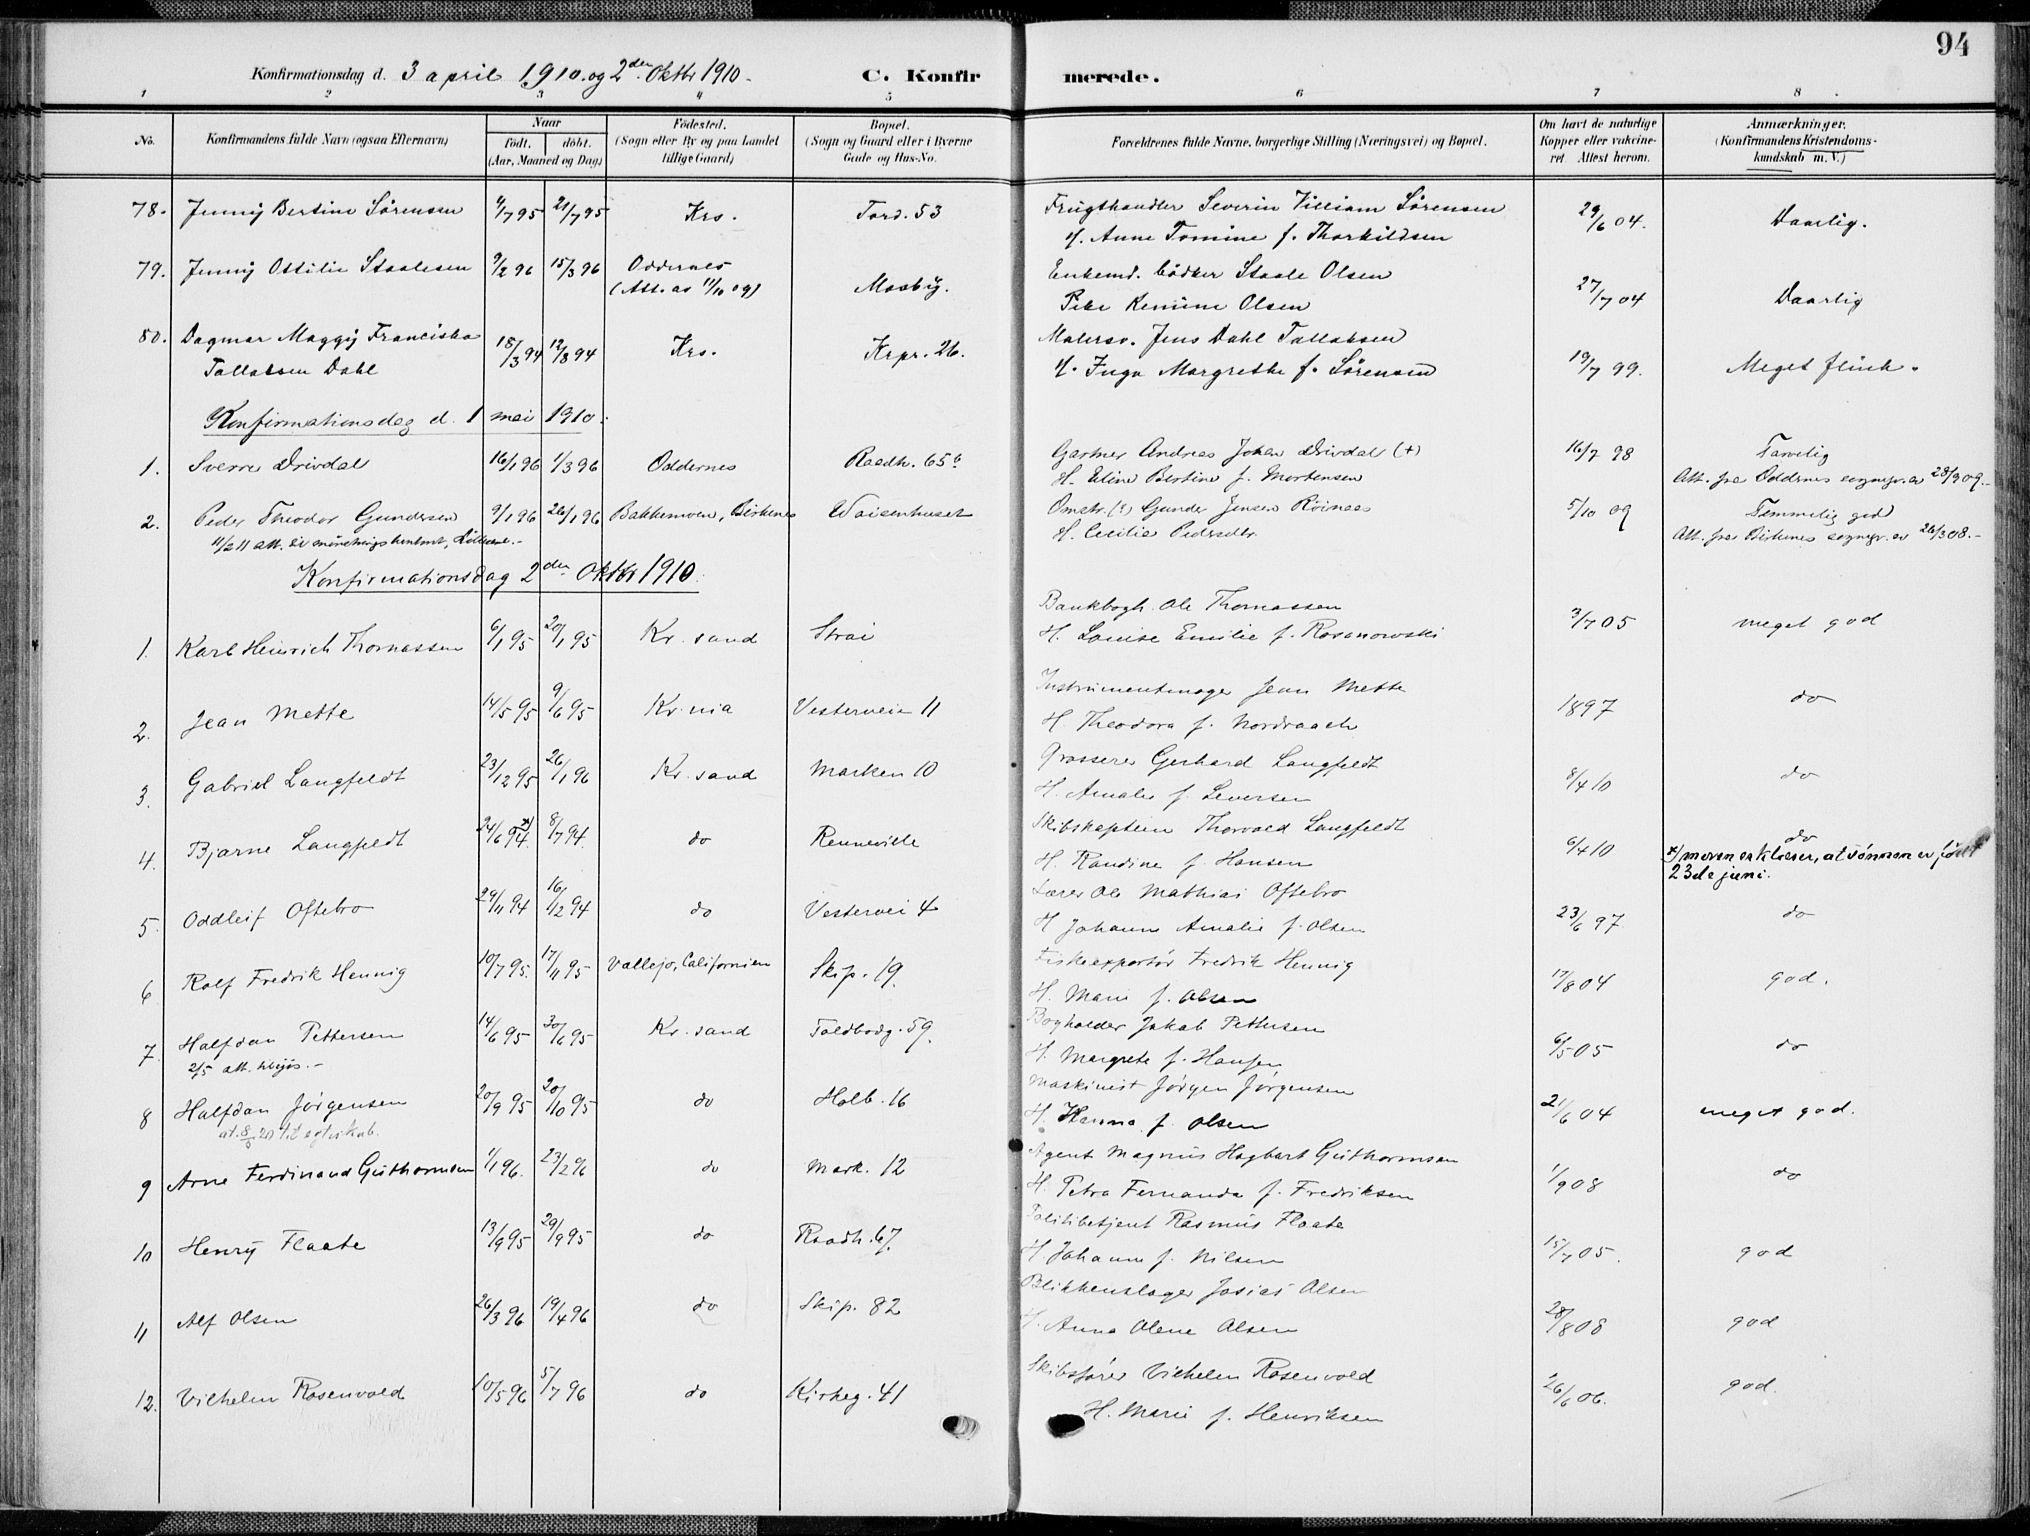 94
Konfirmationsdag d. 3 april 1910. og 2den Oktbr 1910.
C. Konfirmerede.
1 2 3 4 5 6 7 8
No. Konfirmandens fulde Navn (ogsaa Efternavn) Naar født. døbt. (Aar, Maaned og Dag) Fødested. (Sogn eller By og paa Landet tillige Gaard) Bopæl. (Sogn og Gaard eller i Byerne Gade og Hus-No. Forældrenes fulde Navne, borgerlige Stilling (Næringsvei) og Bopæl. Om havt de naturlige Kopper eller vakcineret. Attest herom. Anmærkninger. (Konfirmandens Kristendomskundskab m. V.)
78. Jenny Bertine Sørensen 4/7 95 21/7 95 Krs. Tord. 53 Frugthandler Severin Villiam Sørensen 29/6 04. Daarlig.
H. Anne Tomine f. Thorkildsen
79. Jenny Ottilie Staalesen 9/2 96 15/3 96 Oddernes Mosby. Enkemd. bødker Staale Olsen 27/7 04 Daarlig
(Att. av 11/10 09) Olsen
80. Dagmar Maggy Franciska 18/3 94 12/8 94 Krs. Krpr. 26. Malersv. Jens Dahl Tallaksen 19/7 99. Meget flink.
Tallaksen Dahl H. Inga Margrethe f. Sørensen
Konfirmationsdag d. 1 mai 1910.
1. Sverre Drivdal 16/1 96 1/3 96 Oddernes Raadh. 65b Gartner Andreas Johan Drivdal (+) 16/7 98 Tarvelig
H. Eline Bertine f. Mortensen Att. fra Oddernes sognepr. av 28/9 09.-
2. Peder Theodor Gundersen 9/1 96 26/1 96 Bakkemoen, Birkenes Waisenhuset Omstr. (?) Gunder Jensen Röinaas 5/10 09 Temmelig god
11/2 11 att. H. Cecilie Pedersdtr. Att. fra Birkenes sognepr. av 26/3 08.-
Konfirmationsdag 2den Oktbr 1910
1. Karl Heinrich Thomassen 6/1 95 20/1 95 Kr. sand Strai Bankbogh. Ole Thomassen 3/7 05 meget god
H. Louise Emilie f. Rosanowski
2. Jean Mette 14/5 95 9/6 95 Kr. nia Vesterveien 11 Instrumentmager Jean Mette 1897 do
H. Theodora f. Nordraach
3. Gabriel Langfeldt 23/12 95 26/1 96 Kr. sand Marken 10 Grosserer Gerhard Langfeldt 8/4 10 do
H. Amalie f. Seversen
4. Bjarne Langfeldt 24/6 94 x) 8/7 94. do Renneville Skibskaptein Thorvald Langfeldt 6/4 10 do
H. Randine f. Hansen x) moren erklærer, at sönnen er født
23de juni.
5. Oddleif Oftebro 29/11 94 16/12 94 do Vestervei 4 Lærer Ole Mathias Oftebro 23/6 97 do
H Johanne Amalie f. Olsen
6 Rolf Fredrik Hennig 10/7 95. 17/11 95 Vallejo, Californien Skip. 19. Fiskeexportør Fredrik Hennig 17/8 04 god.
H. Marie f. Olsen
7. Halfdan Pettersen 14/6 95 30/6 95 Kr. sand Toldbodg. 59. Bogholder Jakob Pettersen 6/5 05 do
2/5 att. H. Margrete f. Hansen
8 Halfdan Jørgensen 20/9 95 20/10 95 do Holb. 16 Maskinist Jørgen Jørgensen 21/6 04 meget god.
at. 8/5 20 til egteskab. H. Hanna f. Olsen
9 Arne Ferdinand Guthormsen 1/1 96. 23/2 96 do Mark. 12 Agent Magnus Hagbart Guthormsen 1/9 08 do
H. Petra Fernanda f. Fredriksen
10 Henry Flaate 13/9 95 29/9 95 do Raadh. 67. Politibetjent Rasmus Flaate 15/7 05. god
H. Johanne f. Nilsen
11 Alf Olsen 26/3 96 19/4 96 do Skip. 82 Blikkenslager Josias Olsen 28/8 08 god
H. Anna Olene Olsen
12. Vilhelm Rosenvold 10/5 96 5/7 96 do Kirkeg. 41 Skibsfører Vilhelm Rosenvold 26/6 06. god.
H. Marie f. Henriksen